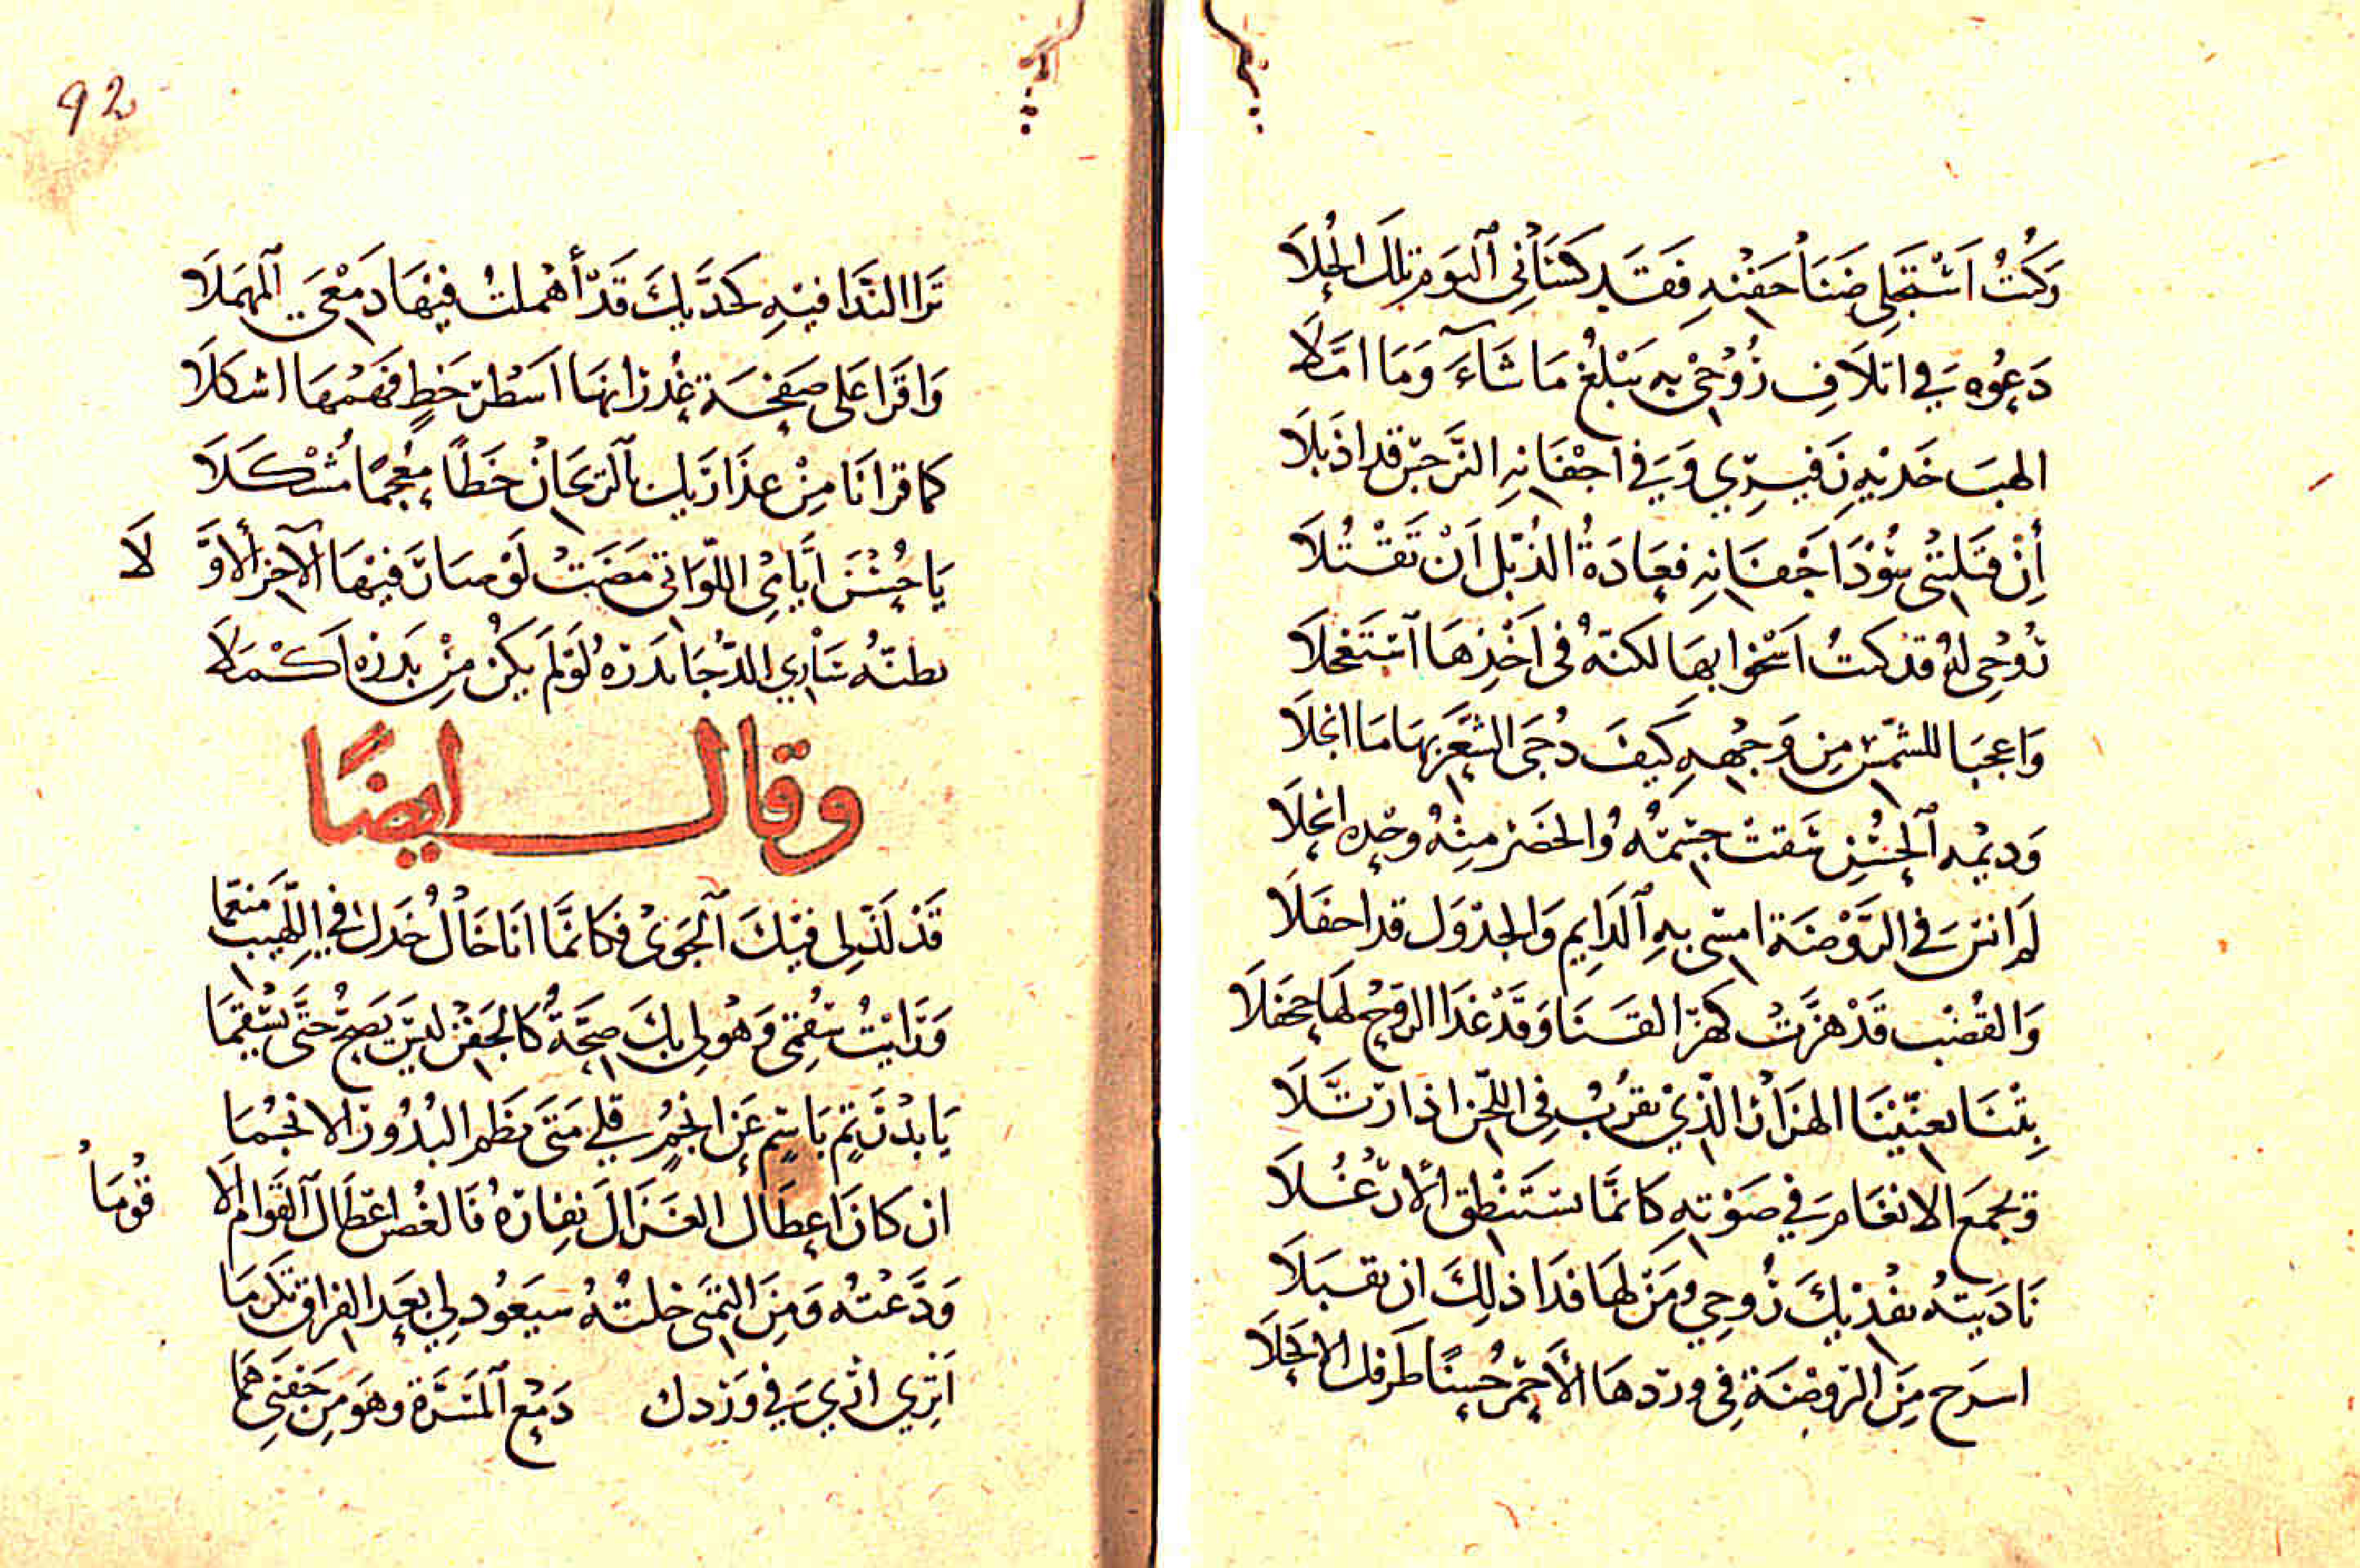 وَكُنْتُ اَسْتَحْلِى ضَنَا جَفْنِهِ فَقَد كَسَانِى اَليَومَ تِلكَ الحُلَا
دَعوُه فِي اتلَافِ رُوُحىْ بِهِ يَبْلُغُ مَا شَآءَ وَمَا امَّلَا
الهبَ خَديْهِ فِي وَفي اجْفَانِهِ النَّرجسَ قد اذبَلَا
أِنْ قتَلتنى سُوُدَ اَجْفَانِهِ فعَادَةُ الذُبّلِ اَنْ تَقْتُلَا
رُوُحِى لهُ قد كنتُ اَسْخوا بهَا لكنّهُ فى اَخْذِهَا اَسْتَعْجَلَا
وَاعجبَا للشمْسِ مِن وَجْهِهِ كَيفَ دُجَى الشَّعَرِ بهَا مَا انجَلَا
وَديْمه اَلحُسْنِ سَقتْ جسْمَهُ وُالخَصْرُ مِنْهُ وحْده انحِلَا
لَم انسَ فِي الرَّوْضَة امسِى بهِ اَلدَايِم وَالجدْوَل قد احفَلَا
وَالقُضْب قَدْ هزَّتْ كهزّ القَنَا وَقَدْ غَدَا الرِوْحُ لهَا جحفَلَا
بِتْنَا يعنّيْنَا الهزَارُ الّذِي يقْرُبُ فِى اللّحْنِ اذا رَتَّلَا
وَيجْمَع الانغَام فِي صَوْتِهِ كَانمَّا يستَنْطِق الأرْغُلَا
نَادَيتهُ يفْدِيْكَ رُوحِي ومَنْ لهَا فدَا ذلِكَ ان يقبَلَا
اسرَح مِنَ الرَوضَة فِى وردهَا الأحْمَرِ حُسنًا طَرفك الاكحَلَا
92
تَرَا النَّدَا فيْهِ كخدَّيكَ قَدْ أهْملتُ فيْهَا دَمْعِيَ اَلمهمَلَا
وَاقرَا عَلى صَفحَة غُدْرَانهَا اَسْطرَ خَطٍ فَهْمُهَا اشكَلَا
كما قرانَا مِنْ عذَارَيك بالرَيحَانِ خَطًا مُعْجَمًا مُشْكَلَا
يَا حُسْنَ اَيَّامِىْ اللّوَاتى مَضَتْ لَوْ صَانَ فيْهَا الآخرُ الأوَّ لَا
بطنّه سَارِي الدُّجَا بَدرَهُ لَوْلَمْ يَكُنْ مِنْ بَدرِه اَكْمَلَا
وقال ايضًا
قَدْ لَذّ لِى فيْكَ اَلجَوىْ فكَانمَّا انَا خَالُ خَدِكَ فى اللّهِيبِ منَعَّمَا
وَرَايْتُ سُقمِى وَهْو لِى بكَ صِحَّةٌ كالجَفْنِ ليسَ يَصِحُّ حتَّى يسْقمَا
يَا بدْرَ تمٍّ بَاسِمٍ عَنْ انجُمٍ قل لِى مَتَى نظم البُدُور الانجُمَا
ان كَانَ اعطَاك الغَزَالَ نِفَارَهُ فَالغُصن اعْطَاك اَلقوَام الَا قُومَا
وَدَّعْتهُ وَمِنَ التمَنّى خلتُهُ سيَعُود لِي بَعد الفراق تَكَرمَا
اَتِرِي اثرِي فِي وَرْدك دَمْع اَلمسَرَّة وهوَ مِن جَفنى همَا